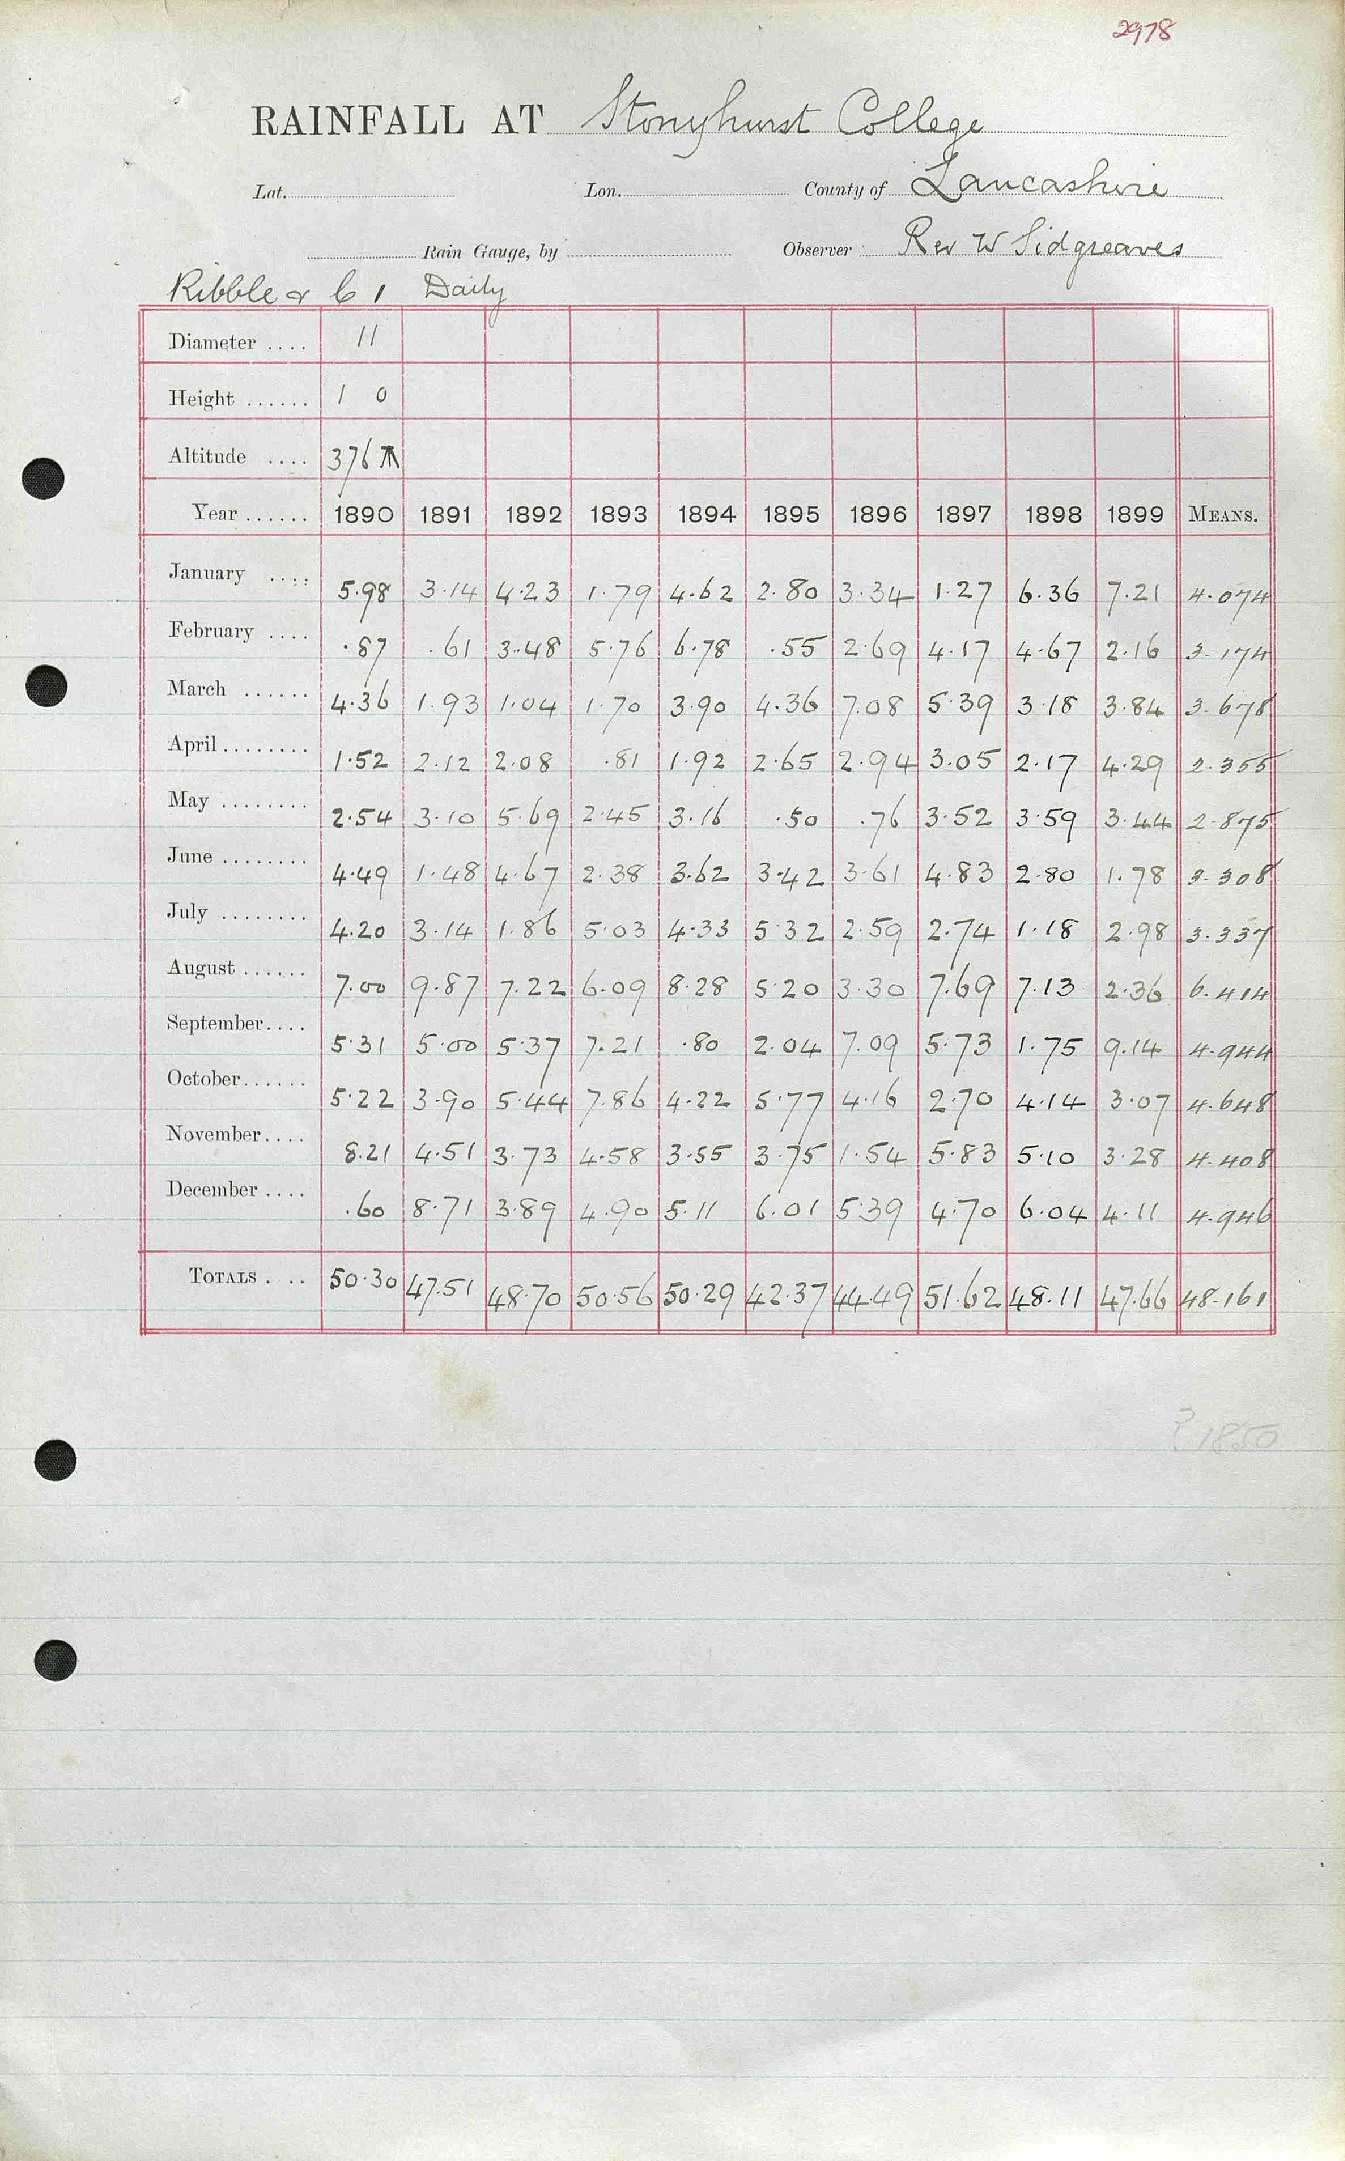 2978
RAINFALL AT Stonyhurst College
Lat. Lon. County of Lancashire
Rain Gauge, by Observer Rev W Sidgreaves
Ribble & C 1 Daily
Diameter .... 11
Height ...... 1 0
Altitude .... 376
Year ...... 1890 1891 1892 1893 1894 1895 1896 1897 1898 1899 MEANS.
January .... 5.98 3.14 4.23 1.79 4.62 2.80 3.34 1.27 6.36 7.21 4.074
February .... .87 .61 3.48 5.76 6.78 .55 2.69 4.17 4.67 2.16 3.174
March ...... 4.36 1.93 1.04 1.70 3.90 4.36 7.08 5.39 3.18 3.84 3.678
April ........ 1.52 2.12 2.08 .81 1.92 2.65 2.94 3.05 2.17 4.29 2.355
May ........ 2.54 3.10 5.69 2.45 3.16 .50 .76 3.52 3.59 3.44 2.875
June ........ 4.49 1.48 4.67 2.38 3.62 3.42 3.61 4.83 2.80 1.78 3.308
July ........ 4.20 3.14 1.86 5.03 4.33 5.32 2.59 2.74 1.18 2.98 3.337
August ...... 7.00 9.87 7.22 6.09 8.28 5.20 3.30 7.69 7.13 2.36 6.414
September.... 5.31 5.00 5.37 7.21 .80 2.04 7.09 5.73 1.75 9.14 4.944
October...... 5.22 3.90 5.44 7.86 4.22 5.77 4.16 2.70 4.14 3.07 4.648
November.... 8.21 4.51 3.73 4.58 3.55 3.75 1.54 5.83 5.10 3.28 4.408
December .... .60 8.71 3.89 4.90 5.11 6.01 5.39 4.70 6.04 4.11 4.946
TOTALS .... 50.30 47.51 48.70 50.56 50.29 42.37 44.49 51.62 48.11 47.66 48.161
? 1850